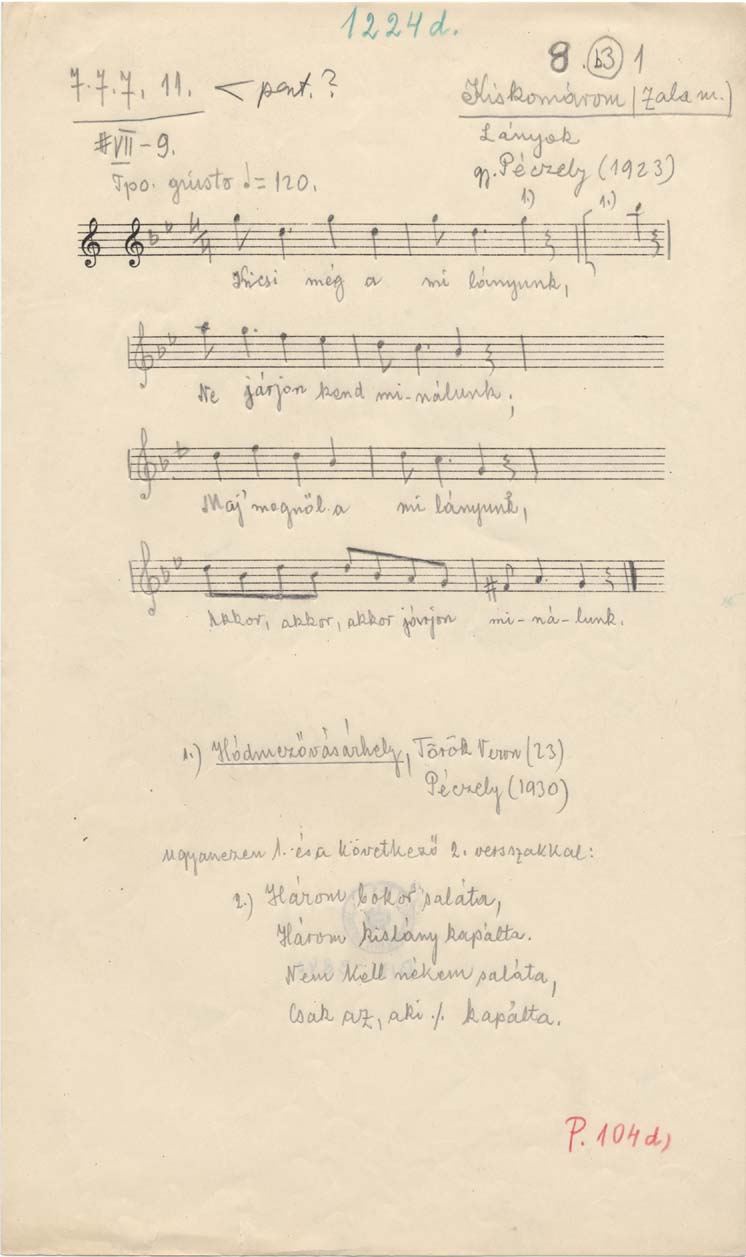 1224d.
8. b3 1
7.7.7. 11. < pent.?
Kiskomárom (Zala m.)
#VII - 9.
Lányok
gy. Péczely (1923)
Tpo. giusto ♩= 120.
1.) 1.)
Kicsi még a mi lányunk,
Ne járjon kend mi-nálunk;
Maj' megnöl a mi lányunk,
Akkor, akkor, akkor járjon mi-ná-lunk.
1.) Hódmezővásárhely, Török Veron (23)
Péczely (1930)
ugyanezen 1. és a következő 2. versszakkal:
2.) Három bokor saláta,
Három kislány kapálta.
Nem kell nékem saláta,
Csak az, aki ·/. kapálta.
P. 104d)